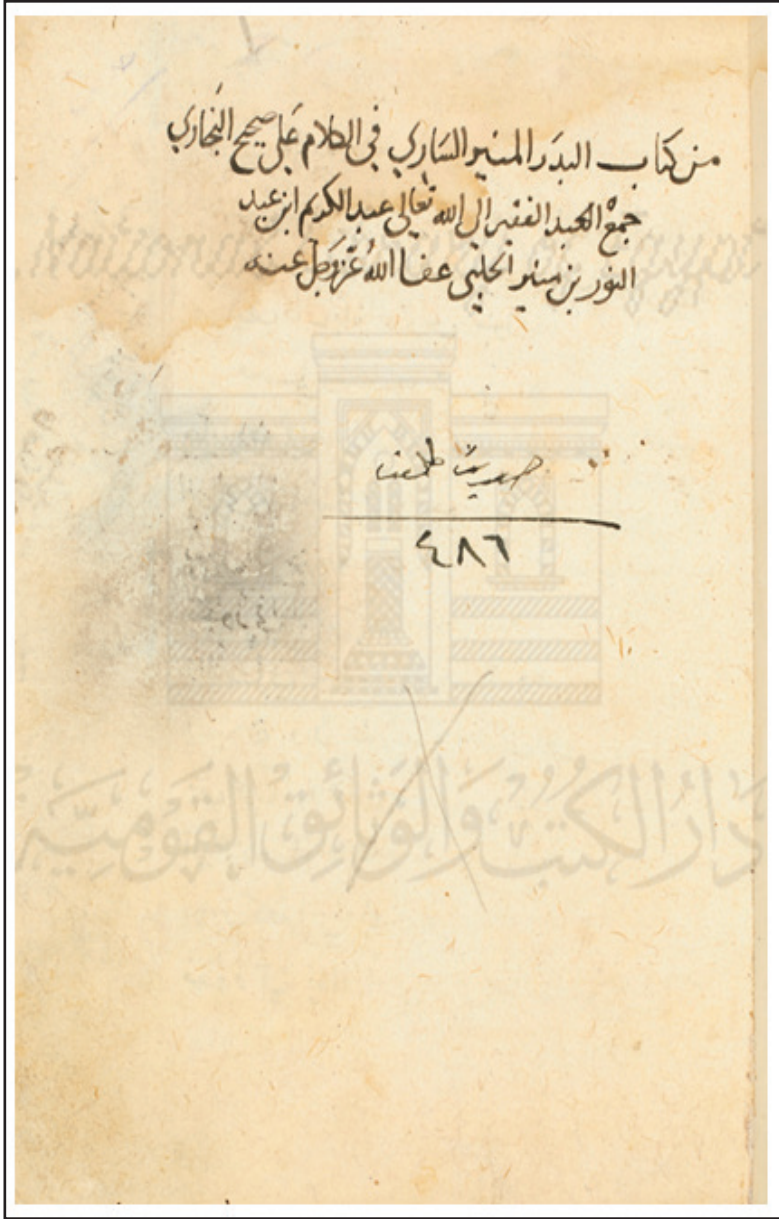 من كتاب البدر المنير الساري في الكلام على صحيح البخاري
جمع العبد الفقير الى الله تعالى عبد الكريم ابن عبد
النور بن منير الحلبي عفا الله عز وجل عنه
حديث طلعت
٤٨٦
National of Egypt
دار الكتب والوثائق القومية